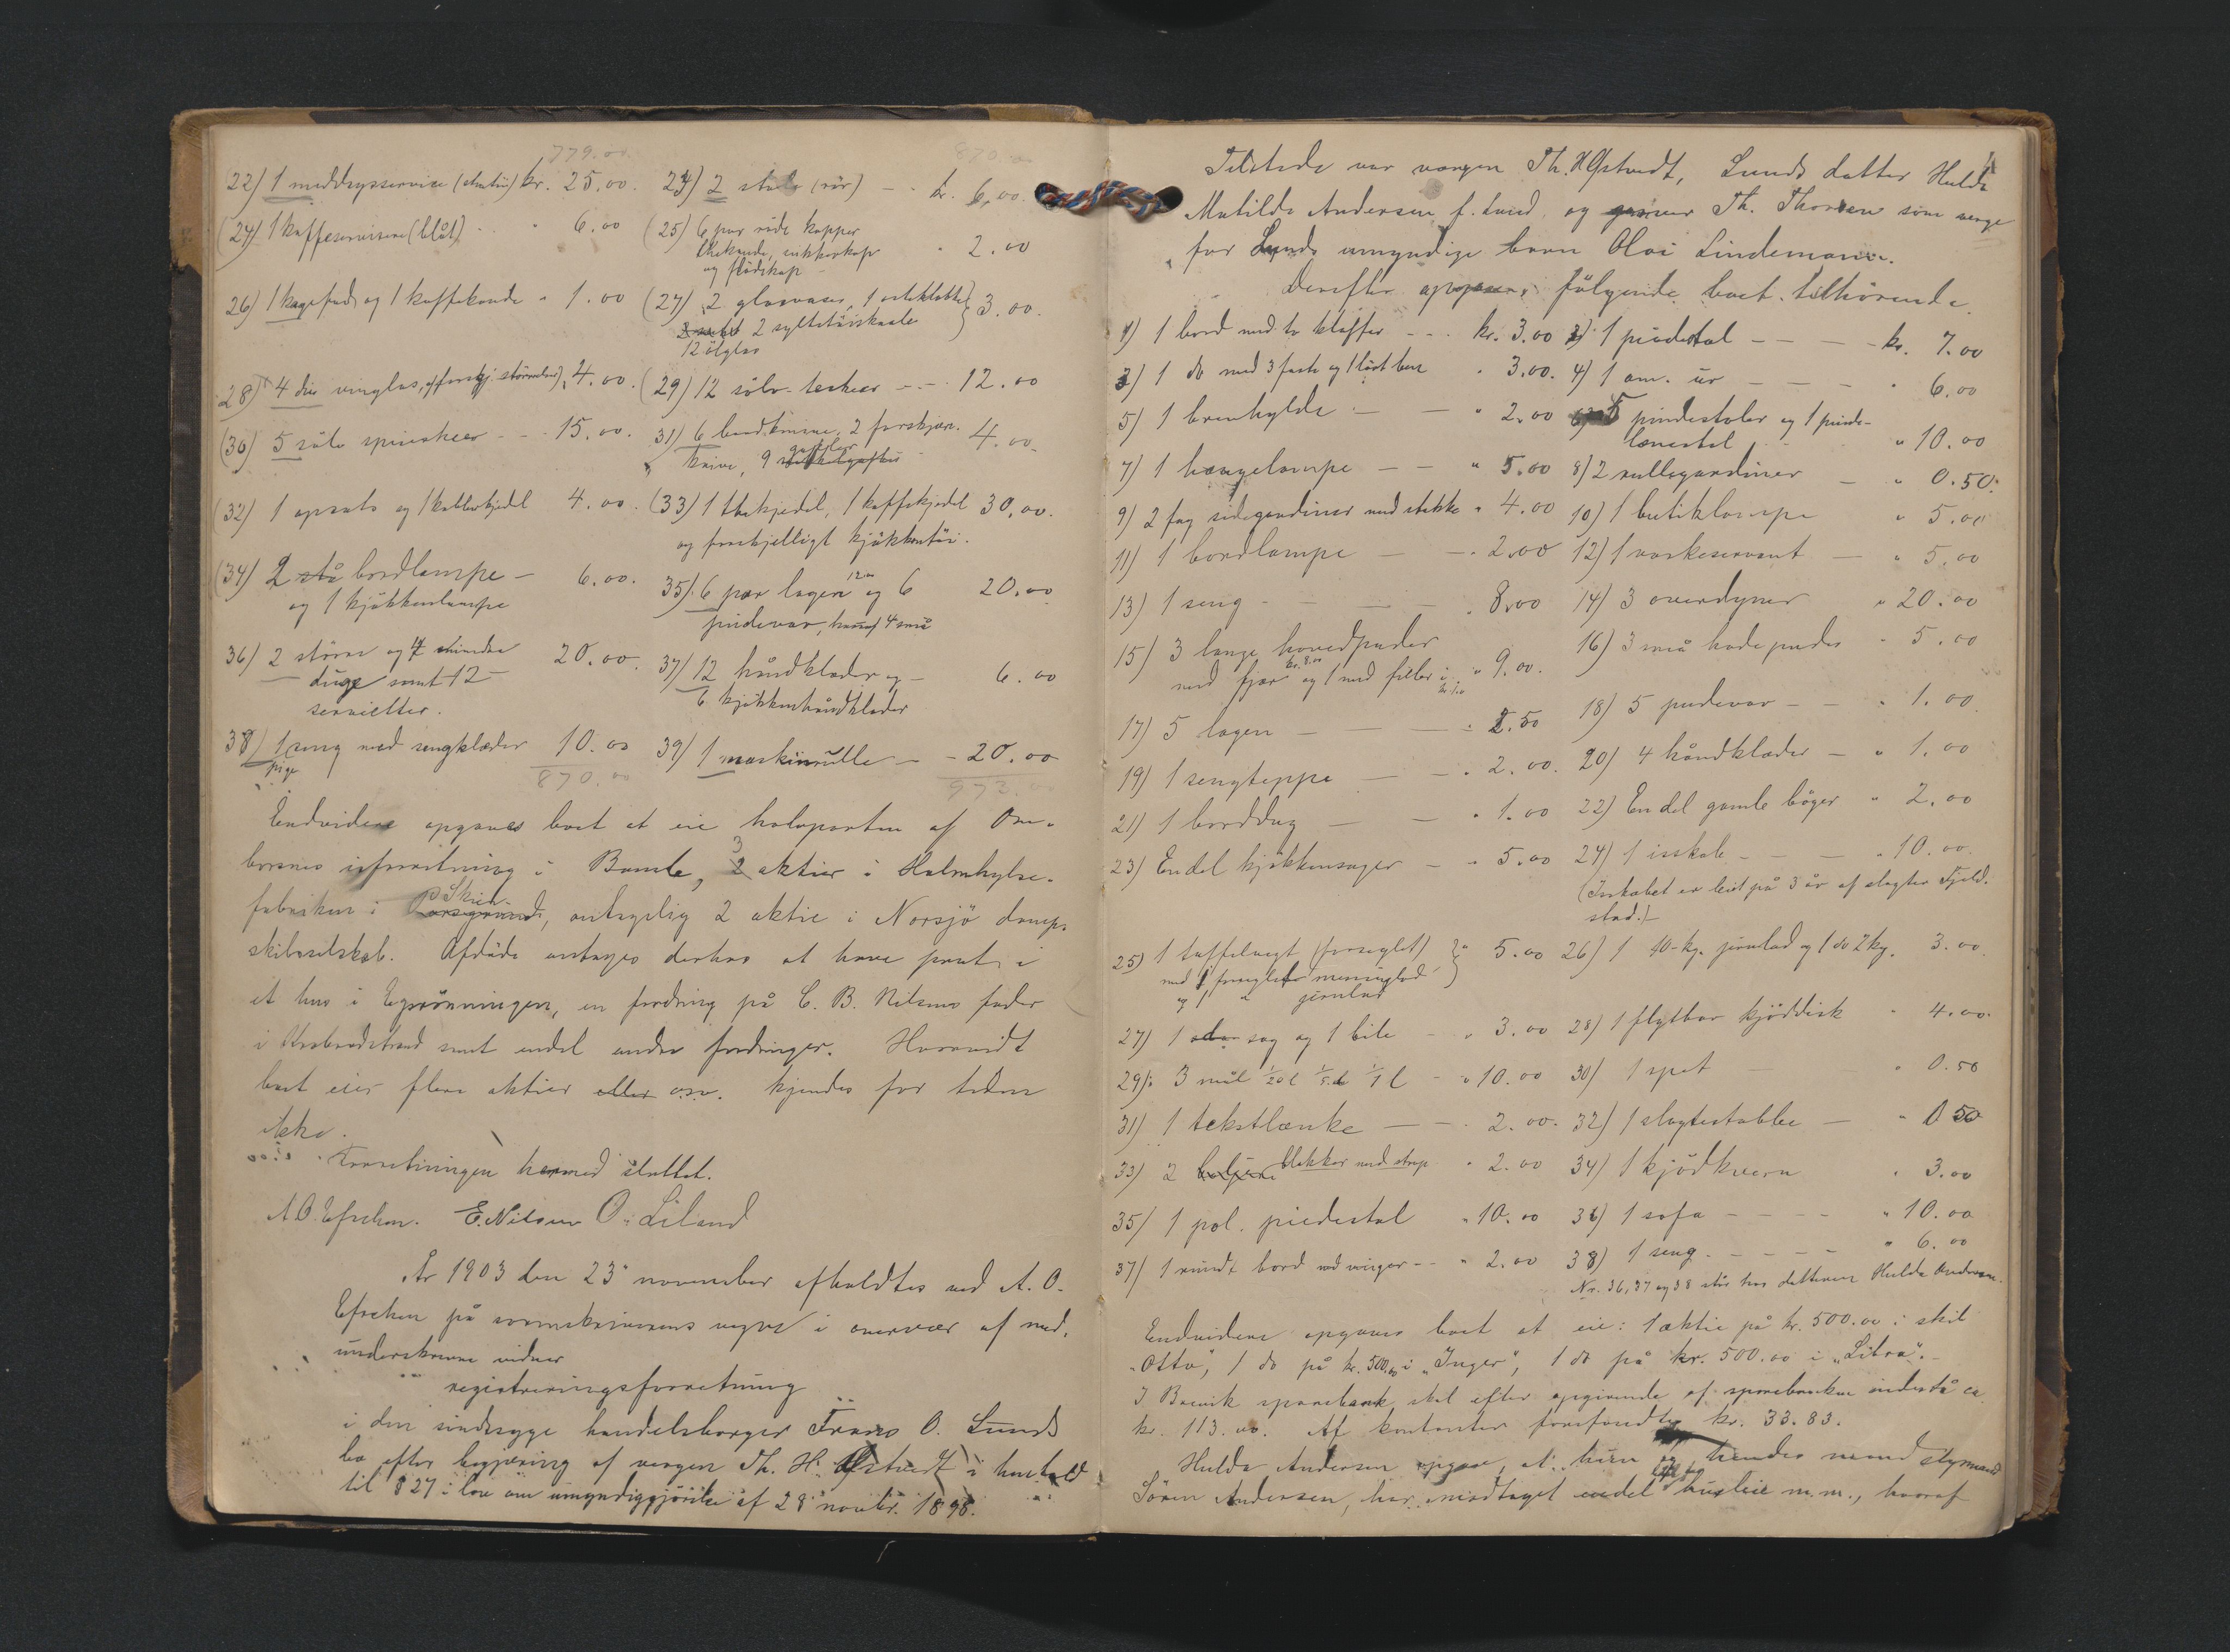 779.00 870.00
22) 1 middagsservice (chatii) kr. 25.00. 23) 2 stole (rör) - - kr. 6,00.
(24) 1 kaffeservise (blåt) - - " 6.00 (25) 6 par röde kopper
thekande, sukkerkop " 2.00
og flödekop -
26) 1 kagefad og 1 kaffekande " 1.00 (27) 2 glasvaser, 1 osteklokke
2 syltetöiskaale } 3.00.
12 ölglas
28) 4 dus. vinglas, af forskj. störrelser, 4.00. (29) 12 sölv-teskeer - - - 12.00
(30) 5 sölv spiseskeer - - 15.00. 31) 6 bordknive, 2 forskjær-
knive, 9 gafler 4.00
(32) 1 opsats og 1 kobberkjedl 4.00. (33) 1 thekjedel, 1 kaffekjedel 30.00.
og forskjelligt kjökkentöi.
(34) 2 stå bordlampe - 6.00. 35) 6 par lagen 12.00 og 6 20.00
og 1 kjökkenlampe pudevar, hvoraf 4 små
36) 2 större og 4 mindre 20.00. 37) 12 håndklæder og - 6.00
duge samt 12 6 kjökkenhåndklæder
servietter.
38) 1 pige seng med sengklæder 10.00 39) 1 maskinrulle - - 20.00
870.00 972.
Endvidere opgaves boet at eie halvparten af Om-
borsnes isforretning i Bamle, 3 aktier i Halmhylse-
fabriken i Skien, antagelig 2 aktie i Norsjö damp-
skibsselskab. Afdöde antages derhos at have part i
et hus i Egrönningen, en fordring på C. B. Nilsens fader
i Krabbodstrand samt endel andre fordringer. Hvorvidt
boet eier flere aktier eller osv. kjendes for tiden
ikke.
Forretningen hermed sluttet.
A.O. Efskem. E. Nilsen O. Liland
År 1903 den 23 november afholdtes ved A. O.
Efskem på sorenskriverens vegne i overvær af med-
underskrevne vidner
registreringsforretning
i den sindssyge handelsborger Frans O. Lunds
bo efter begjæring af vergen Th. H. Ofstvedt i henhold
til § 27 i lov om umyndiggjörelse af 28 novbr. 1898.
Tilstede var vergen Th. H. Ofstvedt, Lunds datter Hulda
Matilde Andersen f. Lund, og garver Th. Thorsen som verge
for Lunds umyndige barn Olai Lindemann.
Derefter opgaves fölgende boet tilhörende.
1) 1 bord med to klaffer - - - kr. 3.00 2) 1 piedestal - - - kr. 7.00
3) 1 do med 3 faste og 1 löst ben " 3.00. 4) 1 am. ur - - - " 6.00
5) 1 brevhylde - - " 2.00 6) 5 pindestoler og 1 pinde-
lænestol " 10.00
7) 1 hængelampe - - " 5.00 8) 2 rullegardiner - " 0.50
9) 2 fag sidegardiner med stokke " 4.00 10) 1 butiklampe " 5.00
11) 1 bordlampe - - 2.00 12) 1 vaskeservant - " 5.00
13) 1 seng - - - - " 8.00 14) 3 overdyner " 20.00
15) 3 lange hovedpuder 16) 3 små hodepuder " 5.00
med fjær kr. 8.00 og 1 med filler i kr. 1.00 " 9.00.
17) 5 lagen - - - - " 2.50 18) 5 pudevar - - " 1.00
19) 1 sengteppe - - " 2.00. 20) 4 håndklæder - " 1.00
21) 1 borddug - - " 1.00 22) Endel gamle böger " 2.00
23) Endel kjökkensager - " 5.00 24) 1 isskab - - - " 10.00.
(Isskabet er leiet på 3 år af slagter Fjeld-
stad.)
25) 1 taffelvegt (forseglet) } " 5.00 26) 1 10-kg. jernlod og 1 do 2 kg. 3.00
med 1 forseglet messinglod
og 1 " jernlod
27) 1 sag og 1 bile " 3.00 28) 1 flytbar kjöddisk " 4.00.
29) 3 mål 1/20 l 1/5 l 1/1 l - " 10.00 30) 1 spet " 0.50
31) 1 tekstlænke - - 2.00. 32) 1 slagtestabbe - " 0 50
33) 2 blokker med strop " 2.00 34) 1 kjödkvern " 3.00
35) 1 pol. piedestal " 10.00 36) 1 sofa - - - - " 10.00
37) 1 rundt bord med vinger - - " 2.00 38) 1 seng. - - - - " 6.00
Nr. 36, 37 og 38 står hos datteren Hulda Andersen.
Endvidere opgaves boet at eie: 1 aktie på kr. 500.00 i skib
"Otto", 1 do på kr. 500.00 i "Inger", 1 do på kr. 500.00 i "Libra".
I Brevik sparebank skal efter opgivende af sparebanken indestå ca
kr. 113.00. Af kontanter forefandtes kr. 33.83.
Hulda Andersen opgav, at hun og hendes mand styrmand
Sören Andersen, har modtaget endel husleie m.m., hvoraf